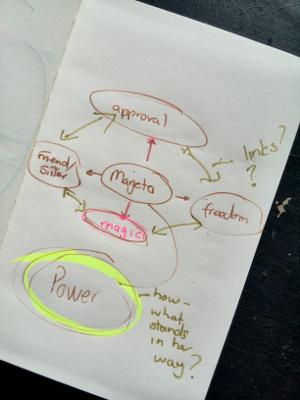 approval
links?
?
Friend/
Sister
Marjeta
freedom
magic
Power
how-
what
stands
in her
way?